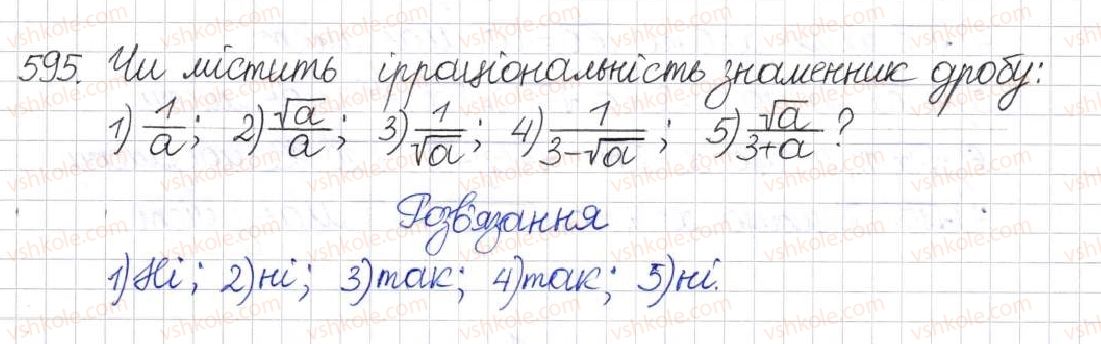 595. Чи містить ірраціональність знаменник дробу:
1) 1/a; 2) √a/a; 3) 1/√a; 4) 1/(3-√a); 5) √a/(3+a)?
Розв'язання
1) Ні; 2) ні; 3) так; 4) так; 5) ні.